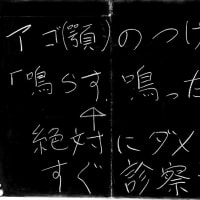 アゴ(顎)のつけ
「鳴らす,鳴った
↑
絶対にダメ
すぐ診察